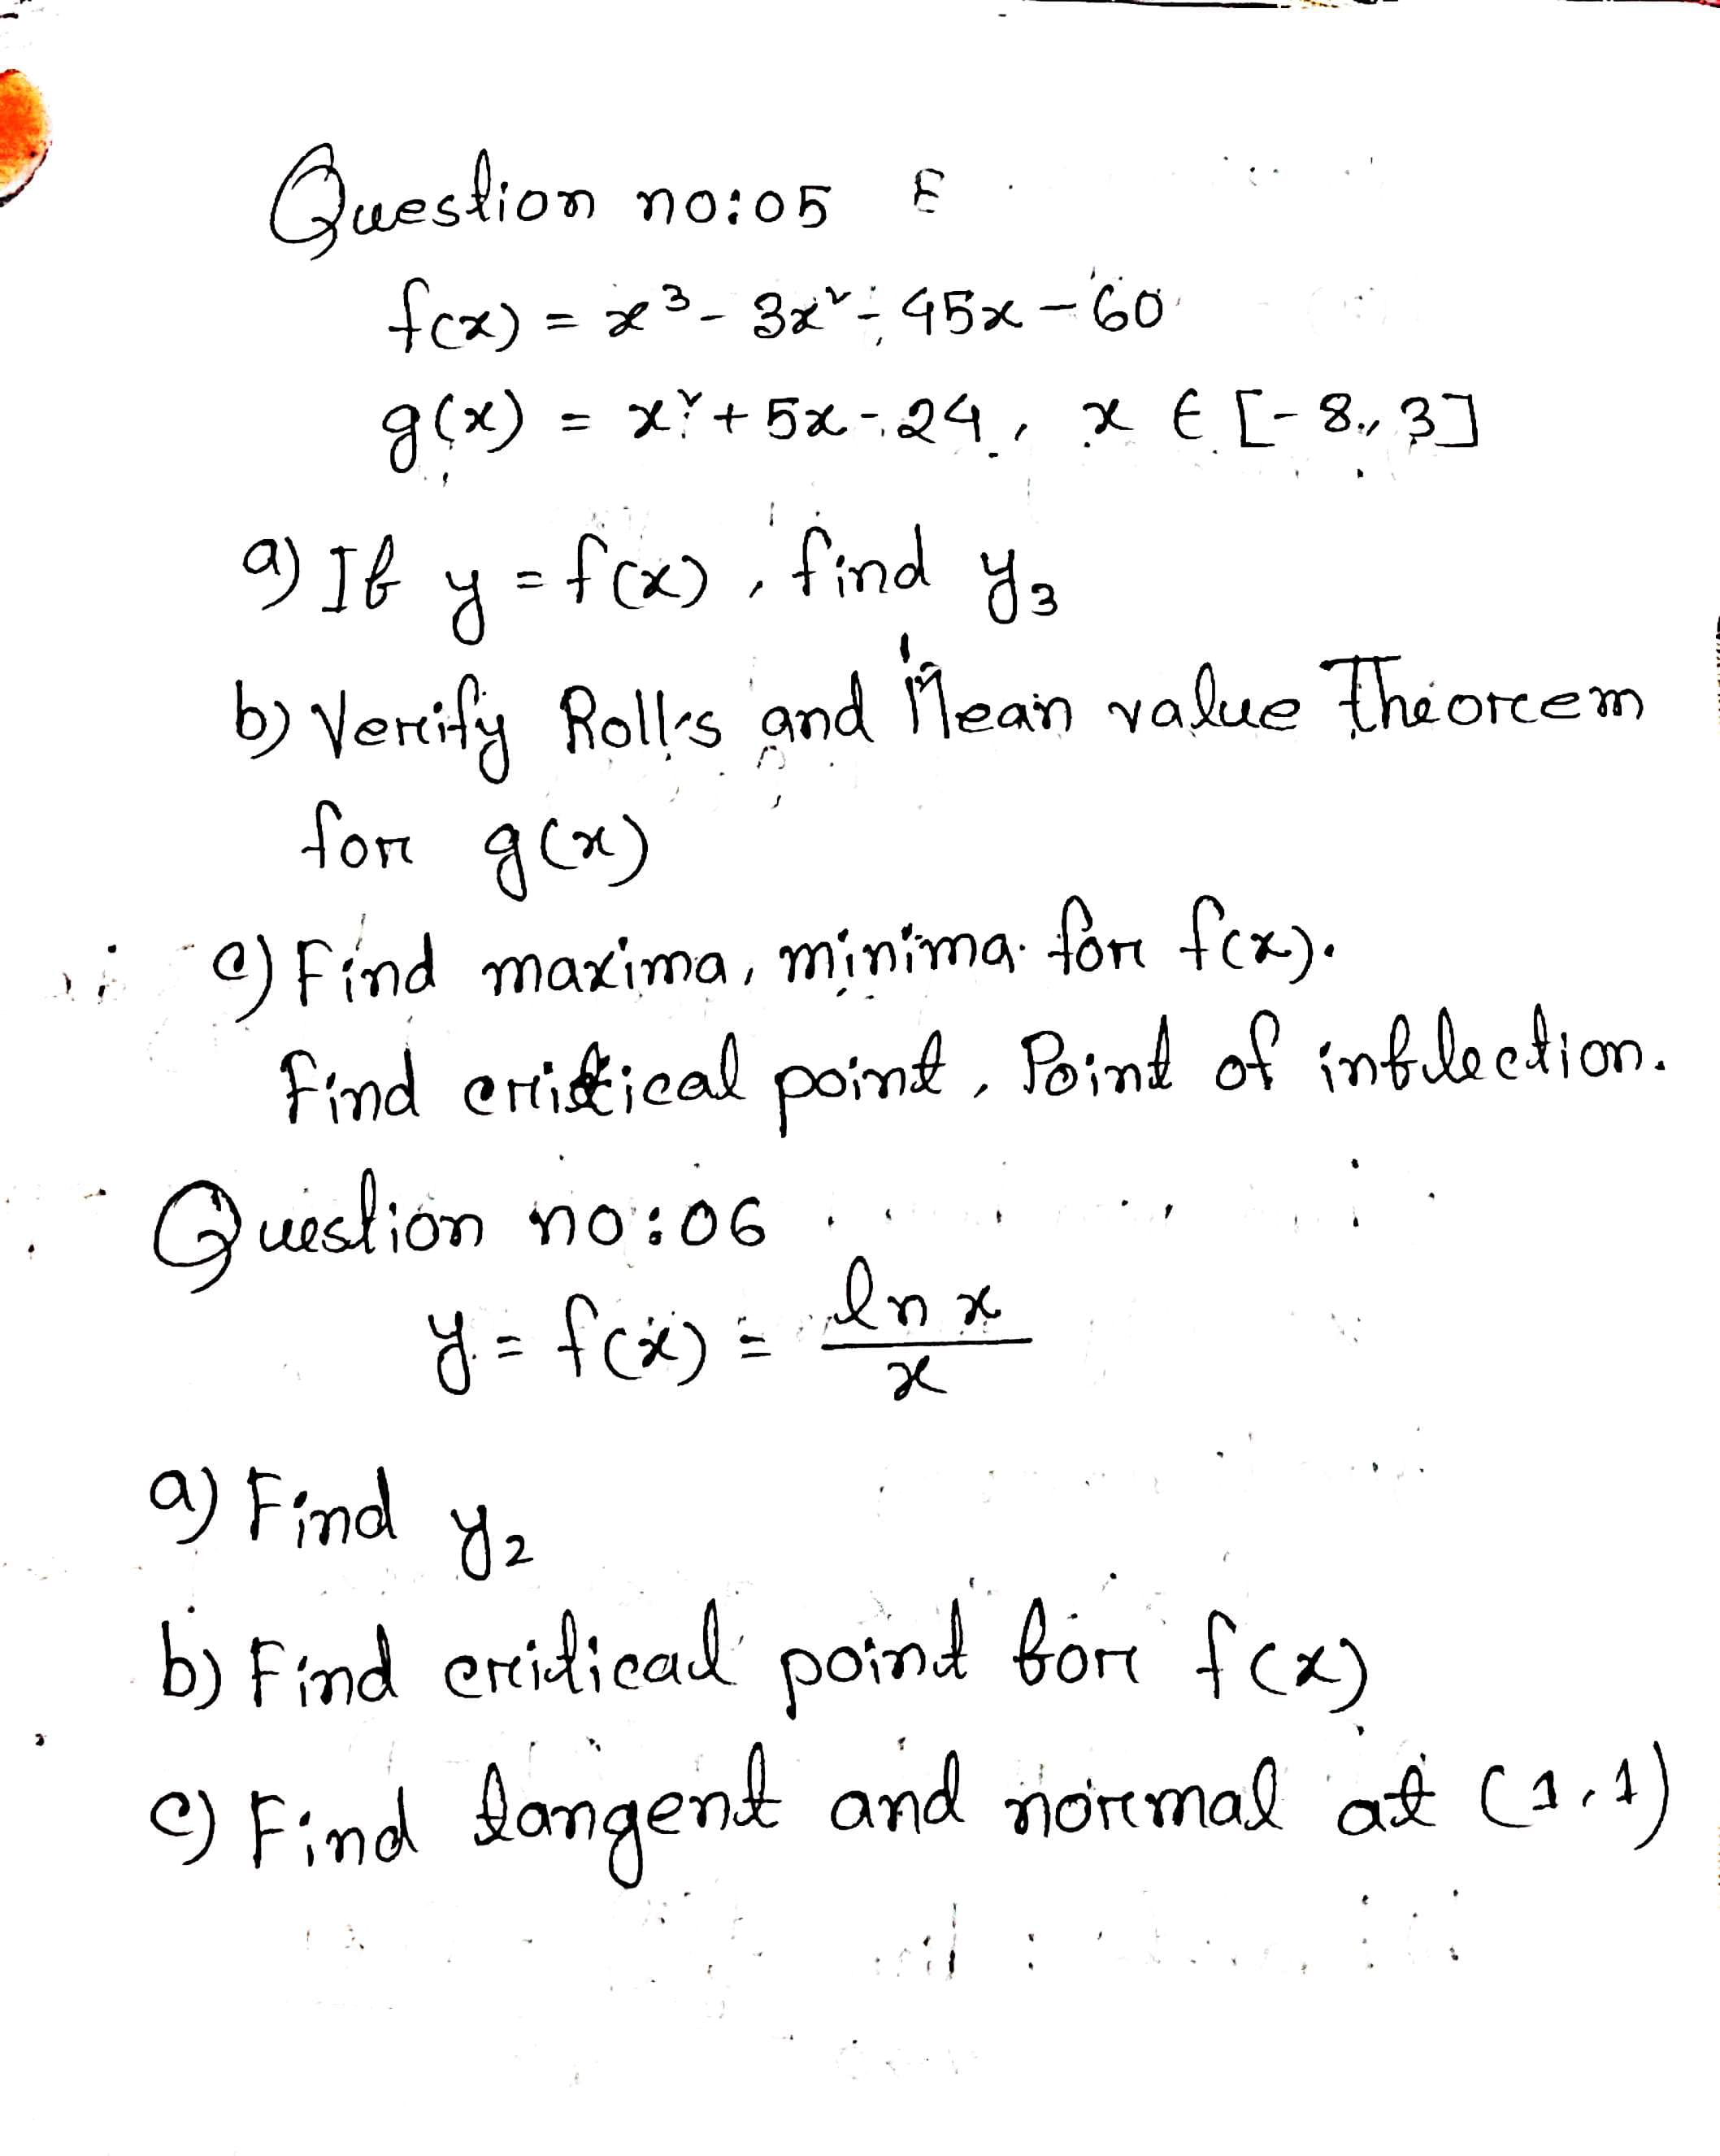 Question no:05
f(x) = x³ - 3x² - 45x - 60
g(x) = x² + 5x - 24, x ∈ [-8, 3]
a) If y = f(x), find y₃
b) Verify Rolle's and Mean value Theorem
for g(x)
c) Find maxima, minima for f(x).
Find critical point, Point of inflection.
Question no:06
y = f(x) = ln x / x
a) Find y₂
b) Find critical point for f(x)
c) Find tangent and normal at (1,1)